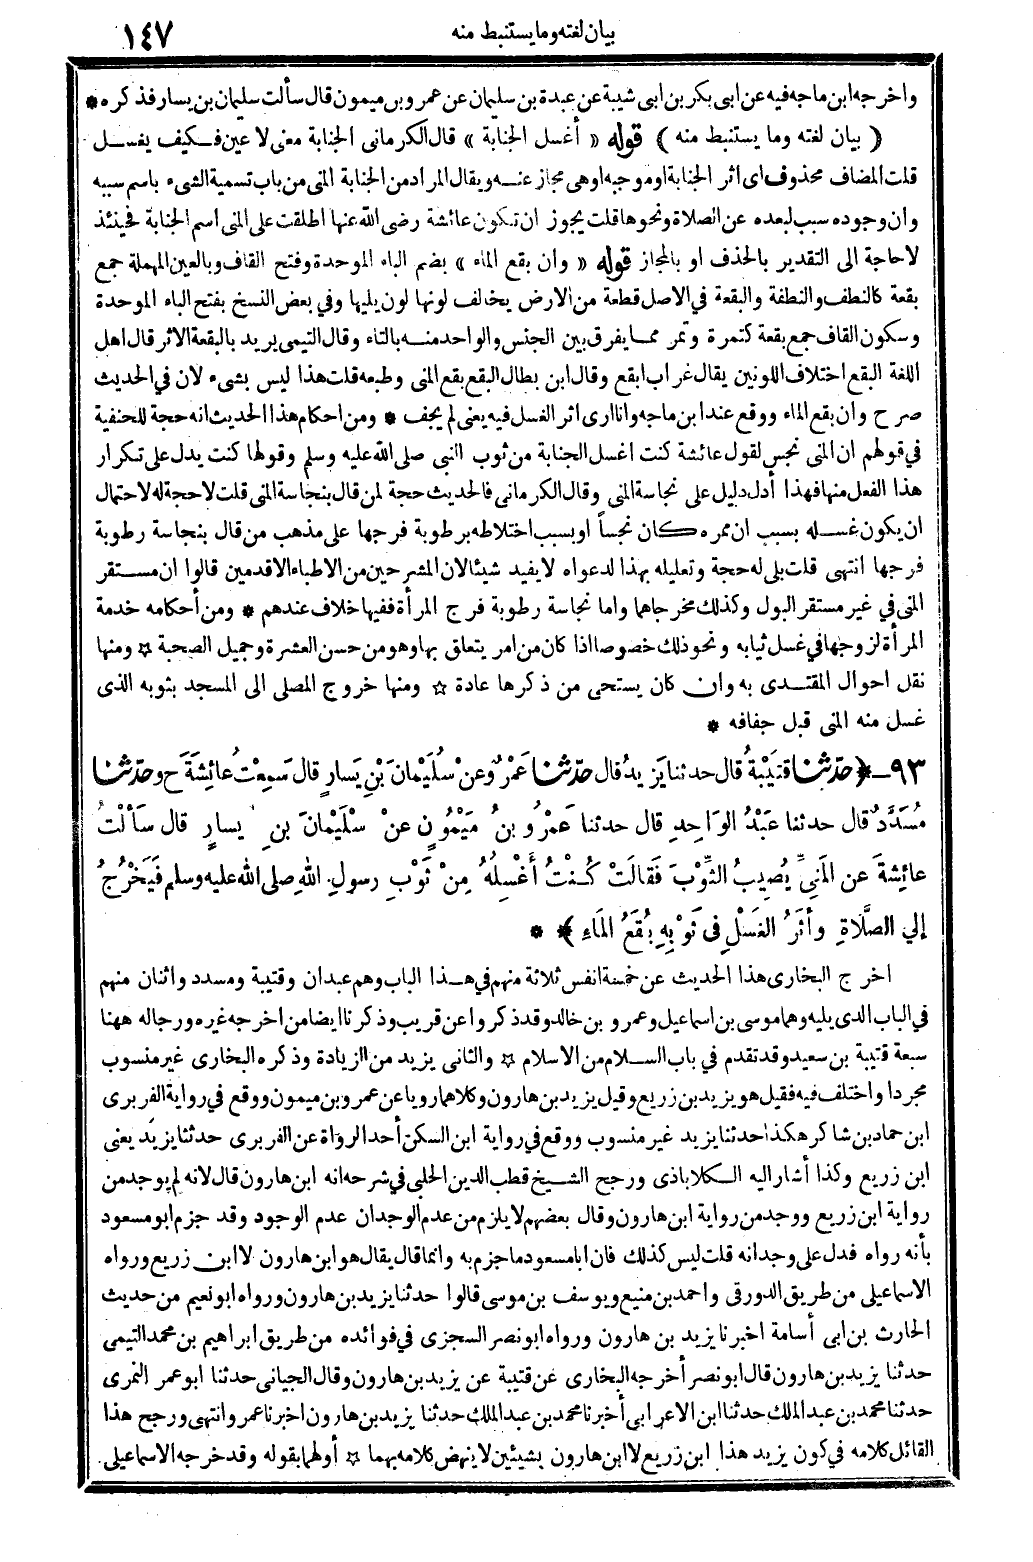 بيان لغته وما يستنبط منه ١٤٧
واخرجه ابن ماجه فيه عن ابى بكر بن ابى شيبة عن عبدة بن سليمان عن عمرو بن ميمون قال سألت سليمان بن يسار فذكره *
( بيان لغته وما يستنبط منه ) قوله « أغسل الجنابة » قال الكرمانى الجنابة معنى لا عين فكيف يغسل
قلت المضاف محذوف اى اثر الجنابة او موجبه او هى مجاز عنه ويقال المراد من الجنابة المنى من باب تسمية الشىء باسم سببه
وان وجوده سبب لبعده عن الصلاة ونحوها قلت يجوز ان تكون عائشة رضى الله عنها اطلقت على المنى اسم الجنابة فحينئذ
لا حاجة الى التقدير بالحذف او بالمجاز قوله « وان بقع الماء » بضم الباء الموحدة وفتح القاف وبالعين المهملة جمع
بقعة كالنطف والنطفة والبقعة في الاصل قطعة من الارض يخالف لونها لون يليها وفي بعض النسخ بفتح الباء الموحدة
وسكون القاف جمع بقعة كتمرة وتمر مما يفرق بين الجنس والواحد منه بالتاء وقال التيمى يريد بالبقعة الاثر قال اهل
اللغة البقع اختلاف اللونين يقال غراب ابقع وقال ابن بطال البقع بقع المنى وطبعه قلت هذا ليس بشىء لان في الحديث
صرح وان بقع الماء ووقع عند ابن ماجه وانا ارى اثر الغسل فيه يعنى لم يجف * ومن احكام هذا الحديث انه حجة للحنفية
في قولهم ان المنى نجس لقول عائشة كنت اغسل الجنابة من ثوب النبي صلى الله عليه وسلم وقولها كنت يدل على تكرار
هذا الفعل منها فهذا أدل دليل على نجاسة المنى وقال الكرمانى فالحديث حجة لمن قال بنجاسة المنى قلت لا حجة له لاحتمال
ان يكون غسله بسبب ان ممره كان نجساً او بسبب اختلاطه برطوبة فرجها على مذهب من قال بنجاسة رطوبة
فرجها انتهى قلت بلى له حجة وتعليله بهذا لدعواه لا يفيد شيئا لان المشرحين من الاطباء الاقدمين قالوا ان مستقر
المنى في غير مستقر البول وكذلك مخرجاهما واما نجاسة رطوبة فرج المرأة ففيها خلاف عندهم * ومن أحكامه خدمة
المرأة لزوجها في غسل ثيابه ونحو ذلك خصوصا اذا كان من امر يتعلق بها وهو من حسن العشرة وجميل الصحبة ☆ ومنها
نقل احوال المقتدى به وان كان يستحى من ذكرها عادة ☆ ومنها خروج المصلى الى المسجد بثوبه الذى
غسل منه المنى قبل جفافه *
٩٣ ـ ﴿ حدثنا قتيبة قال حدثنا يزيد قال حدثنا عَمْرٌو عنْ سُلَيْمانَ بْنِ يَسارٍ قال سَمِعْتُ عائِشَةَ ح وحدثنا
مُسَدَّدٌ قال حدثنا عَبْدُ الوَاحِدِ قال حدثنا عَمْرُو بنُ مَيْمُونٍ عنْ سُلَيْمانَ بنِ يسارٍ قال سَأَلْتُ
عائِشةَ عنِ المَنِىِّ يُصِيبُ الثَّوْبَ فَقالَتْ كُنْتُ أَغْسِلُهُ مِنْ ثَوْبِ رسولِ اللهِ صلى الله عليه وسلم فَيَخْرُجُ
إلي الصَّلاَةِ وأثَرُ الغَسْلِ فى ثَوْبِهِ بُقَعُ المَاءِ ﴾ * *
اخرج البخارى هذا الحديث عن خمسة انفس ثلاثة منهم في هذا الباب وهم عبدان وقتيبة ومسدد واثنان منهم
في الباب الذى يليه وهما موسى بن اسماعيل وعمرو بن خالد وقد ذكروا عن قريب وذكرنا ايضا من اخرجه غيره ورجاله ههنا
سبعة قتيبة بن سعيد وقد تقدم في باب السلام من الاسلام ☆ والثانى يزيد من الزيادة وذكره البخارى غير منسوب
مجردا واختلف فيه فقيل هو يزيد بن زريع وقيل يزيد بن هارون وكلاهما رويا عن عمرو بن ميمون ووقع في رواية الفربرى
ابن حماد بن شاكر هكذا حدثنا يزيد غير منسوب ووقع في رواية ابن السكن أحد الرواة عن الفربرى حدثنا يزيد يعنى
ابن زريع وكذا أشار اليه الكلاباذى ورجح الشيخ قطب الدين الحلبى في شرحه انه ابن هارون قال لانه لم يوجد من
رواية ابن زريع ووجد من رواية ابن هارون وقال بعضهم لا يلزم من عدم الوجدان عدم الوجود وقد جزم ابو مسعود
بأنه رواه فدل على وجدانه قلت ليس كذلك فان ابا مسعود ما جزم به وانما قال يقال هو ابن هارون لا ابن زريع ورواه
الاسماعيلى من طريق الدورقى واحمد بن منيع ويوسف بن موسى قالوا حدثنا يزيد بن هارون ورواه ابو نعيم من حديث
الحارث بن ابى أسامة اخبرنا يزيد بن هارون ورواه ابو نصر السجزى في فوائده من طريق ابراهيم بن محمد التيمى
حدثنا يزيد بن هارون قال ابو نصر أخرجه البخارى عن قتيبة عن يزيد بن هارون وقال الجيانى حدثنا ابو عمر النمرى
حدثنا محمد بن عبد الملك حدثنا ابن الاعرابى أخبرنا محمد بن عبد الملك حدثنا يزيد بن هارون اخبرنا عمرو انتهى ورجح هذا
القائل كلامه في كون يزيد هذا ابن زريع لا ابن هارون بشيئين لا ينهض كلامه بهما ☆ أولهما بقوله وقد خرجه الاسماعيلى